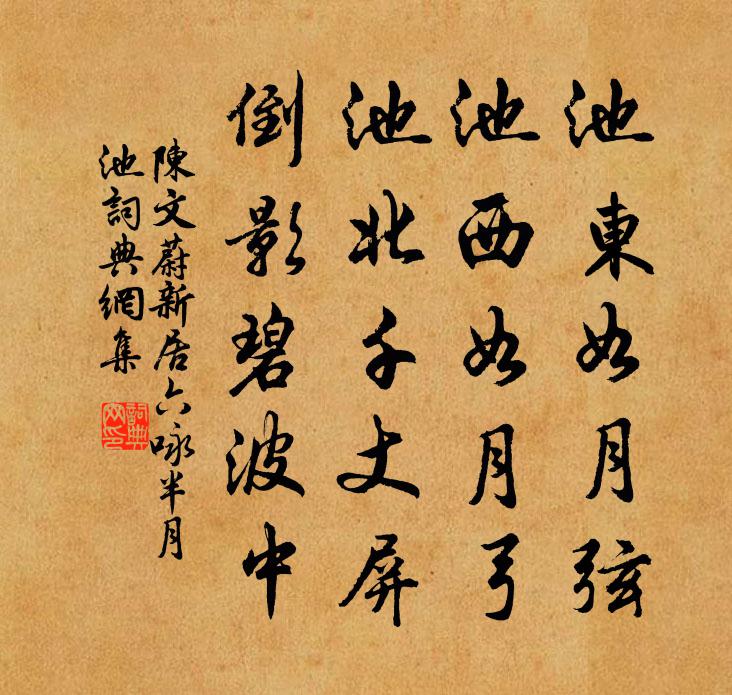 池東如月弦
池西如月弓
池北千丈屏
倒影碧波中
陳文蔚新居六咏半月
池詞典網集
詞典網印